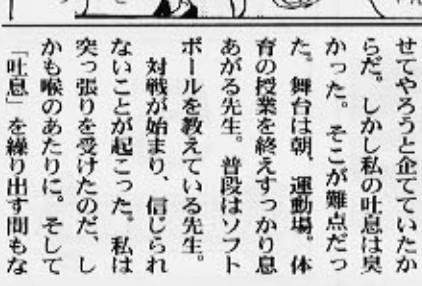 せてやろうと企てていたか
らだ。しかし私の吐息は臭
かった。そこが難点だっ
た。舞台は朝、運動場。体
育の授業を終えすっかり息
あがる先生。普段はソフト
ボールを教えている先生。
対戦が始まり、信じられ
ないことが起こった。私は
突っ張りを受けたのだ、し
かも喉のあたりに。そして
「吐息」を繰り出す間もな